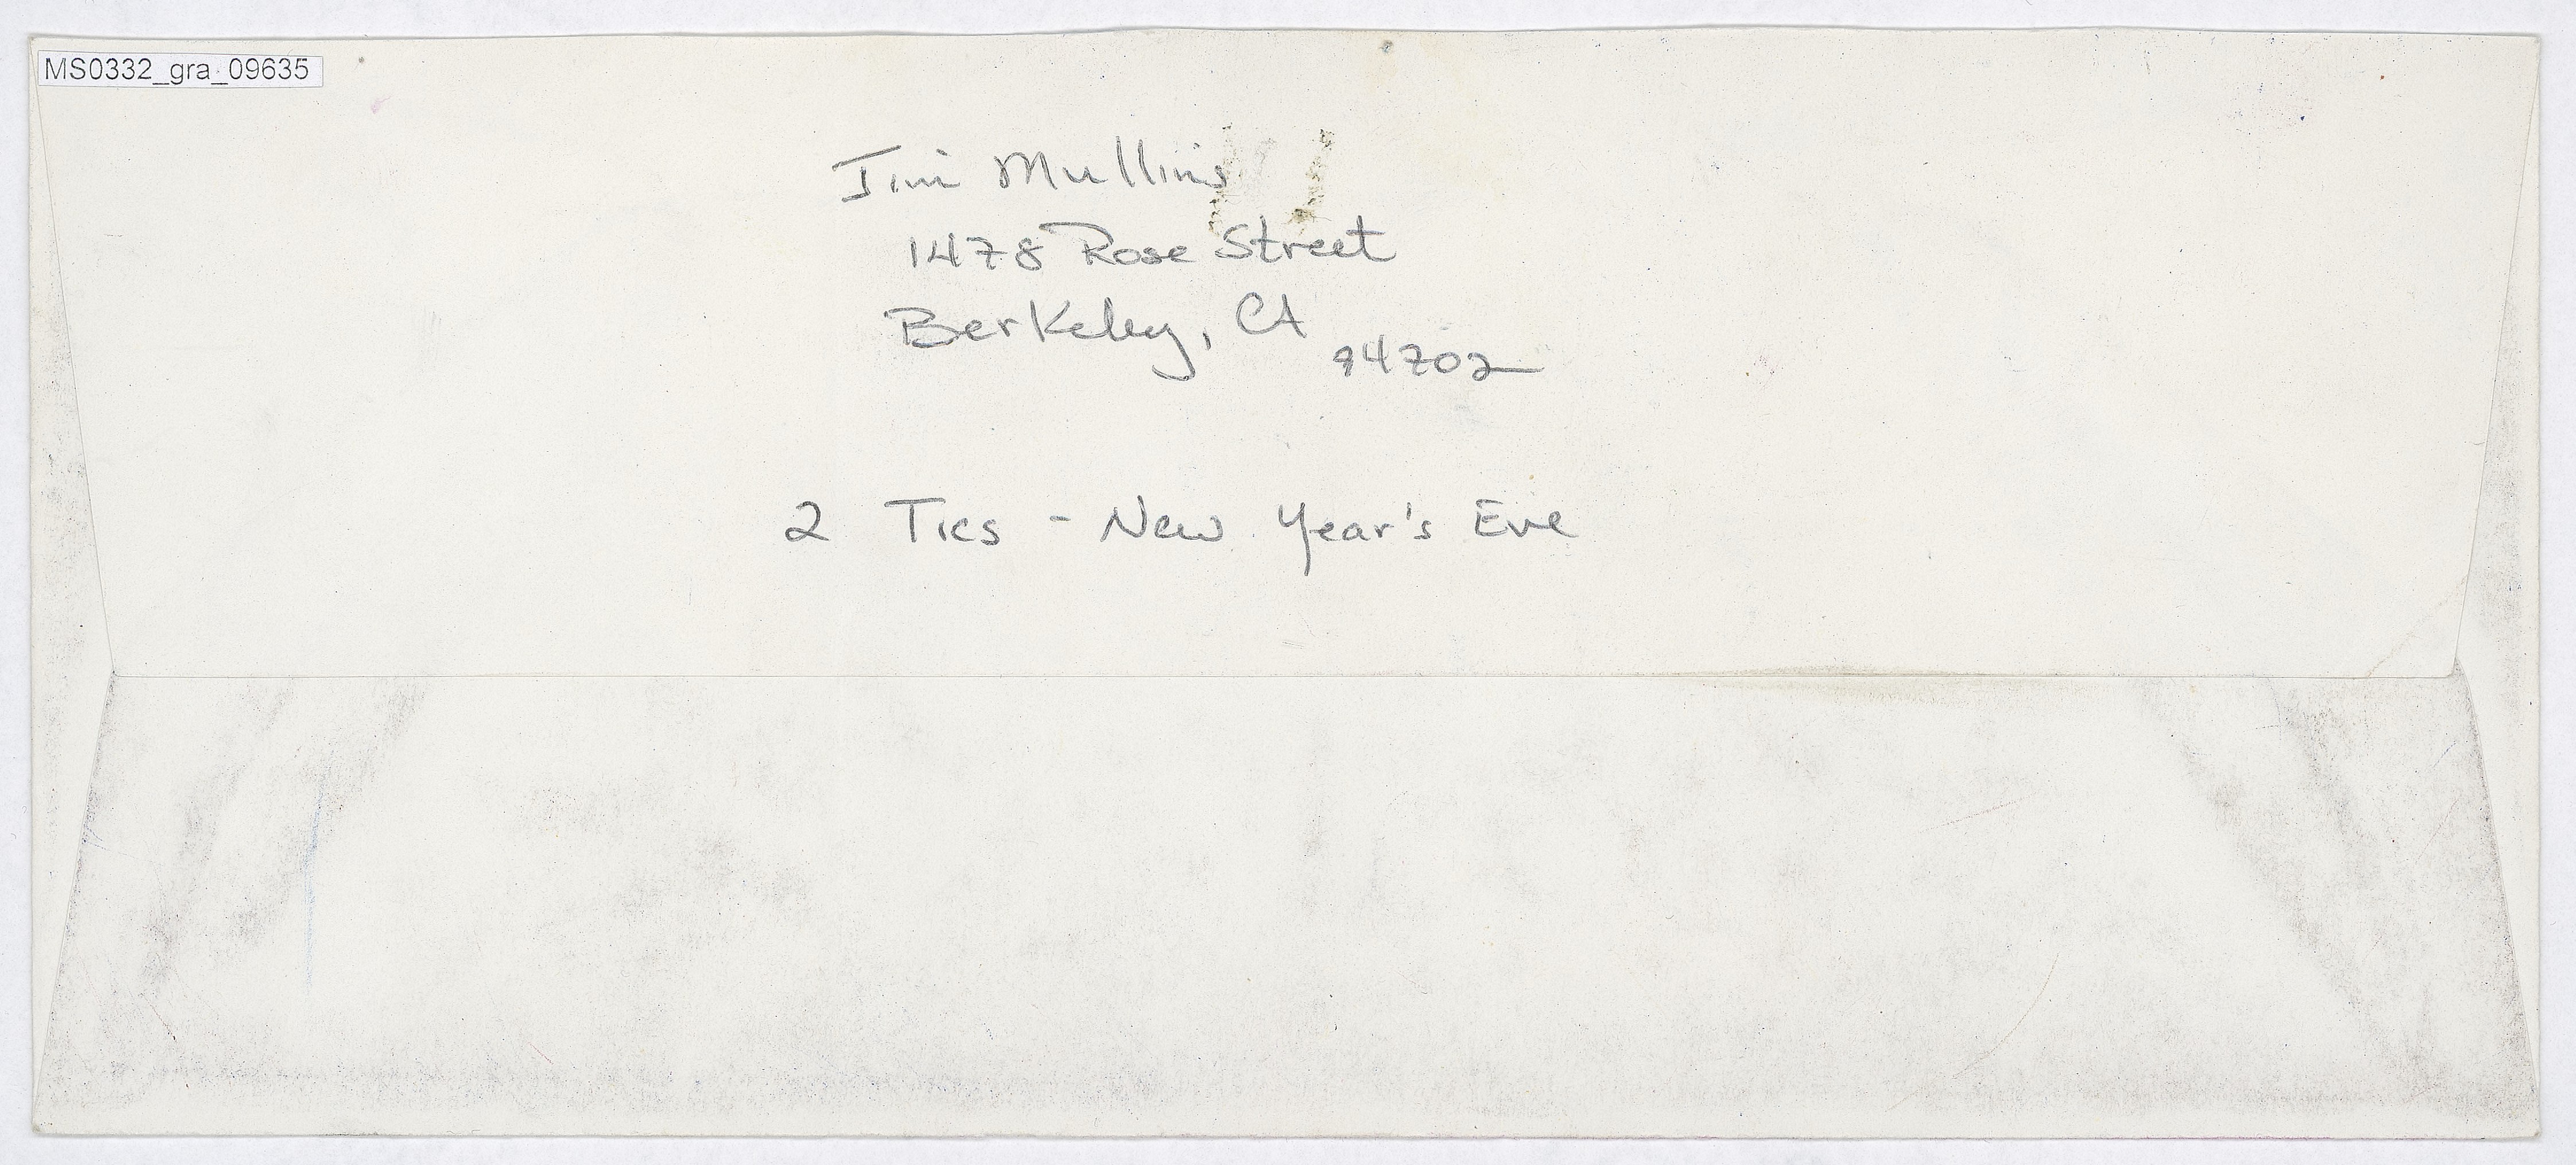 MS0332_gra_09635
Jim Mullins
1478 Rose Street
Berkeley, CA
94702
2 Tics - New Year's Eve